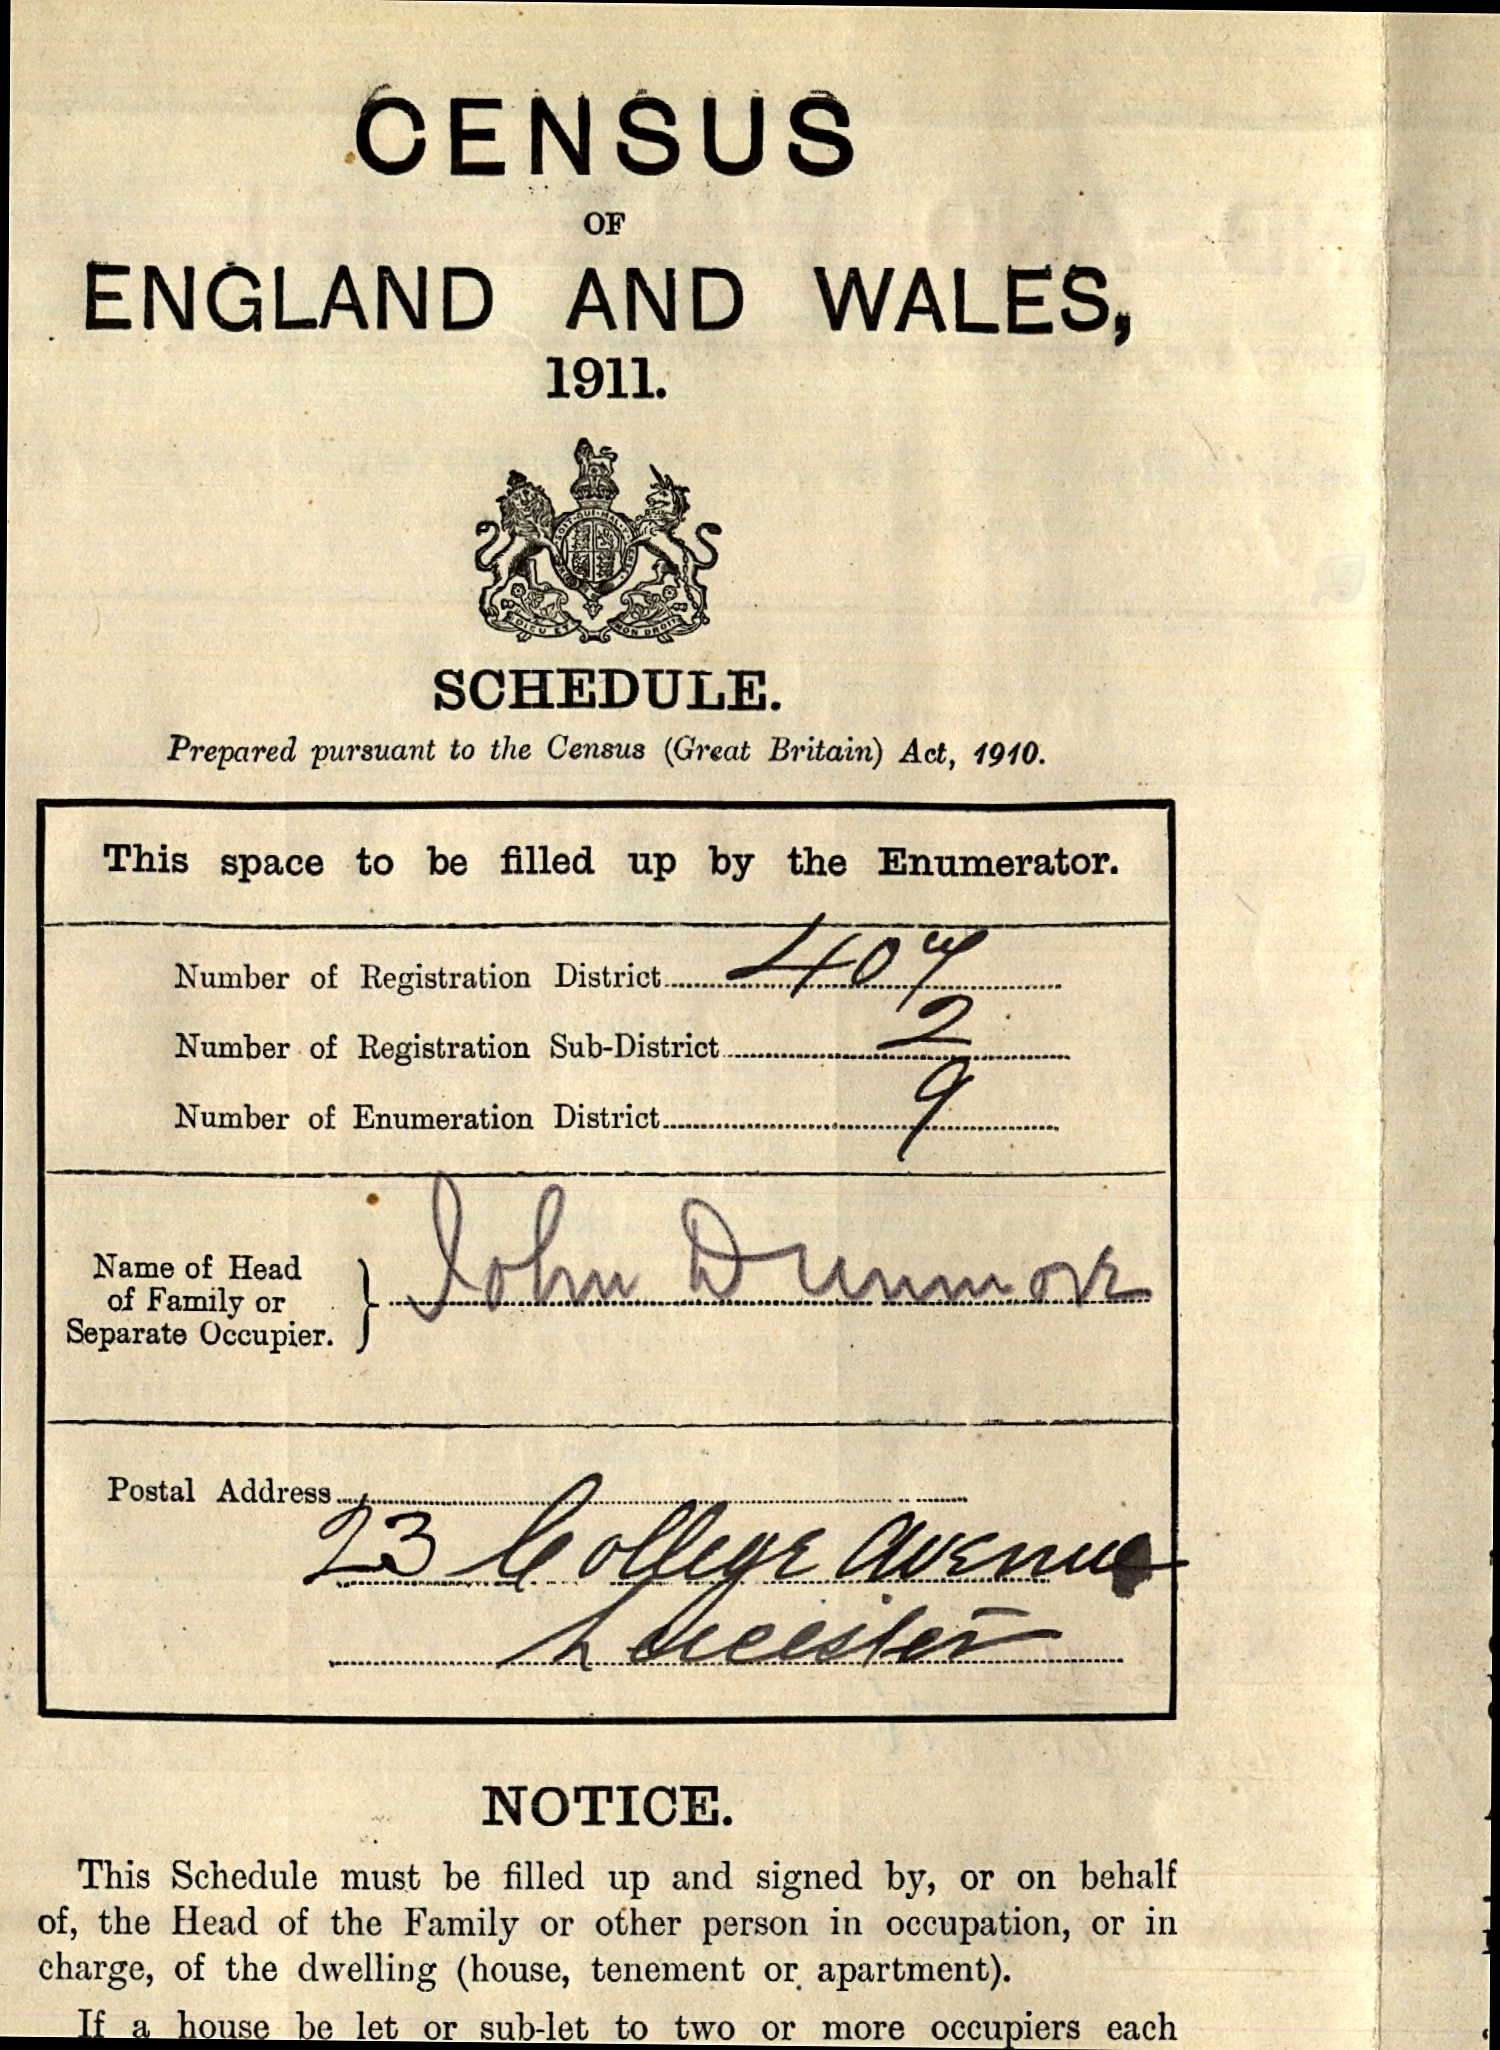 CENSUS
OF
ENGLAND AND WALES,
1911.
DIEU ET MON DROIT
SCHEDULE.
Prepared pursuant to the Census (Great Britain) Act, 1910.
This space to be filled up by the Enumerator.
Number of Registration District 407
Number of Registration Sub-District 2
Number of Enumeration District 9
Name of Head
of Family or
Separate Occupier.
John Dunmore
Postal Address
23 College Avenue
Leicester
NOTICE.
This Schedule must be filled up and signed by, or on behalf
of, the Head of the Family or other person in occupation, or in
charge, of the dwelling (house, tenement or apartment).
If a house be let or sub-let to two or more occupiers each